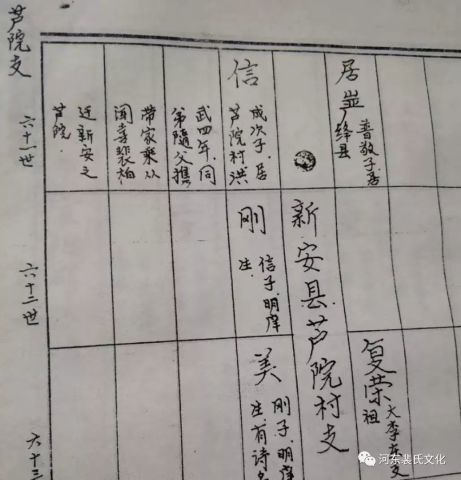 芦院支
六十一世
六十二世
六十三
居
普敬子居
绛县
信
成次子.居
芦院村.洪
武四年.同
弟随父携
带家乘从
闻喜裴柏
迁新安之
芦院
新安县芦院村支
刚
信子.明庠
生.
复荣
大李支
祖
美
刚子.明庠
生.有诗名
河东裴氏文化